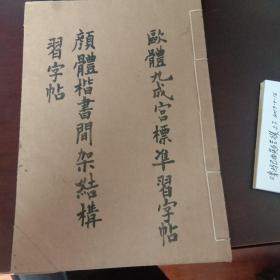 歐體九成宮標準習字帖
顔體楷書間架結構
習字帖